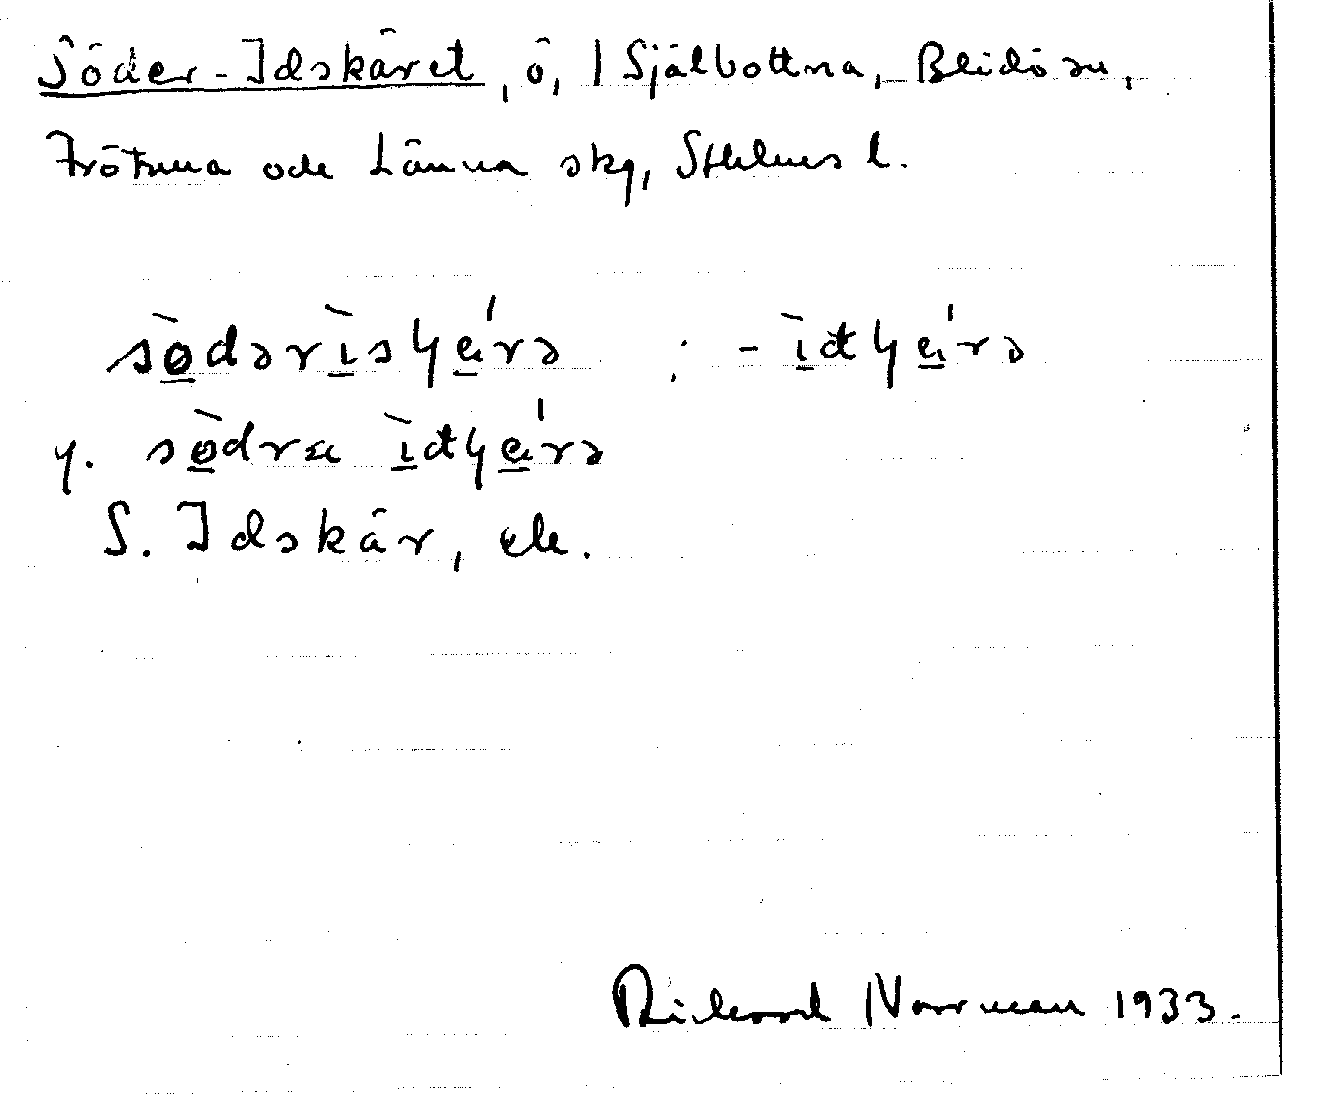 Söder-Idskäret, ö, i Själbottna, Blidö sn,
Frötuna och Länna skg, Sthlms l.
sødərɪsɥɛrə : -ɪdɥɛrə
y. sødra ɪdɥɛrə
S. Idskär, ek.
Rickard Norrman 1933.